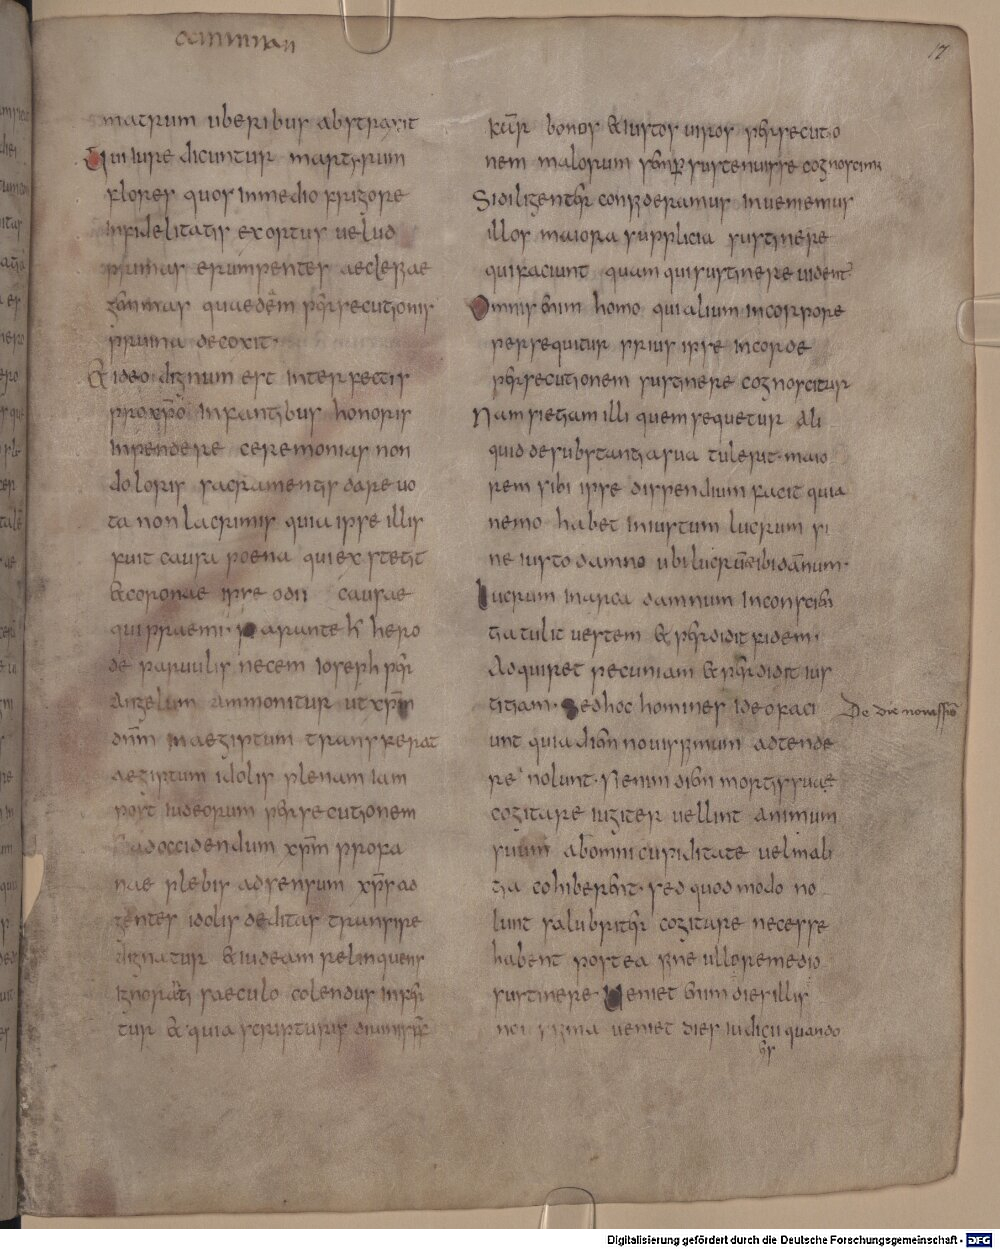 17
matrum uberibus abstraxit
Qui iure dicuntur martyrum
flores quos in medio frigore
infidelitatis exortus uelud
primas erumpentes aeclesiae
gemmas quaedem persecutionis
pruina decoxit·
& ideo dignum est interfectis
pro xpo infantibus honoris
inpendere ceremonias non
doloris sacramentis dare uo
ta non lacrimis quia ipse illis
fuit causa poena qui exstetit
& coronae ipse odii causae
qui praemi·
hero
de paruulis necem ioseph per
angelum ammonitur ut xpm
dnm in aegiptum transferat
aegiptum idolis plenam iam
post iudeorum persecutionem
ad occidendum xpm profa
nae plebis adsensum xps ad
gentes idolis deditas transire
dignatur & iudeam relinquens
ignorati saeculo colendus infer
tur & quia scripturis diuinis
bonos & iustos uiros persecutio
nem malorum semper sustenuisse cognoscimus
Si diligenter consideramus inueniemus
illos maiora supplicia sustinere
qui faciunt quam qui sustinere uident
Omnis enim homo qui alium in corpore
persequitur prius ipse in corde
persecutionem sustinere cognoscitur
Nam si etiam illi quem sequetur ali
quid de substantia sua tulerit· maio
rem sibi ipse dispendium facit quia
nemo habet iniustum lucrum si
ne iusto damno ubi lucrum ibi damnum·
Lucrum in arca damnum in conscien
tia tulit uestem & perdidit fidem·
Adquiret pecuniam & perdidit ius
titiam· Sed hoc homines ideo faci
De die nouissimo
unt quia diem nouissimum adtende
re nolunt· Si enim diem mortis suae
cogitare iugiter uellint animum
suum ab omni cupiditate uel mali
tia cohiberent· sed quod modo no
lunt salubriter cogitare necesse
habent postea sine ullo remedio
sustinere Ueniet enim dies illis
nouissima ueniet dies iudicii quando
Digitalisierung gefördert durch die Deutsche Forschungsgemeinschaft - DFG